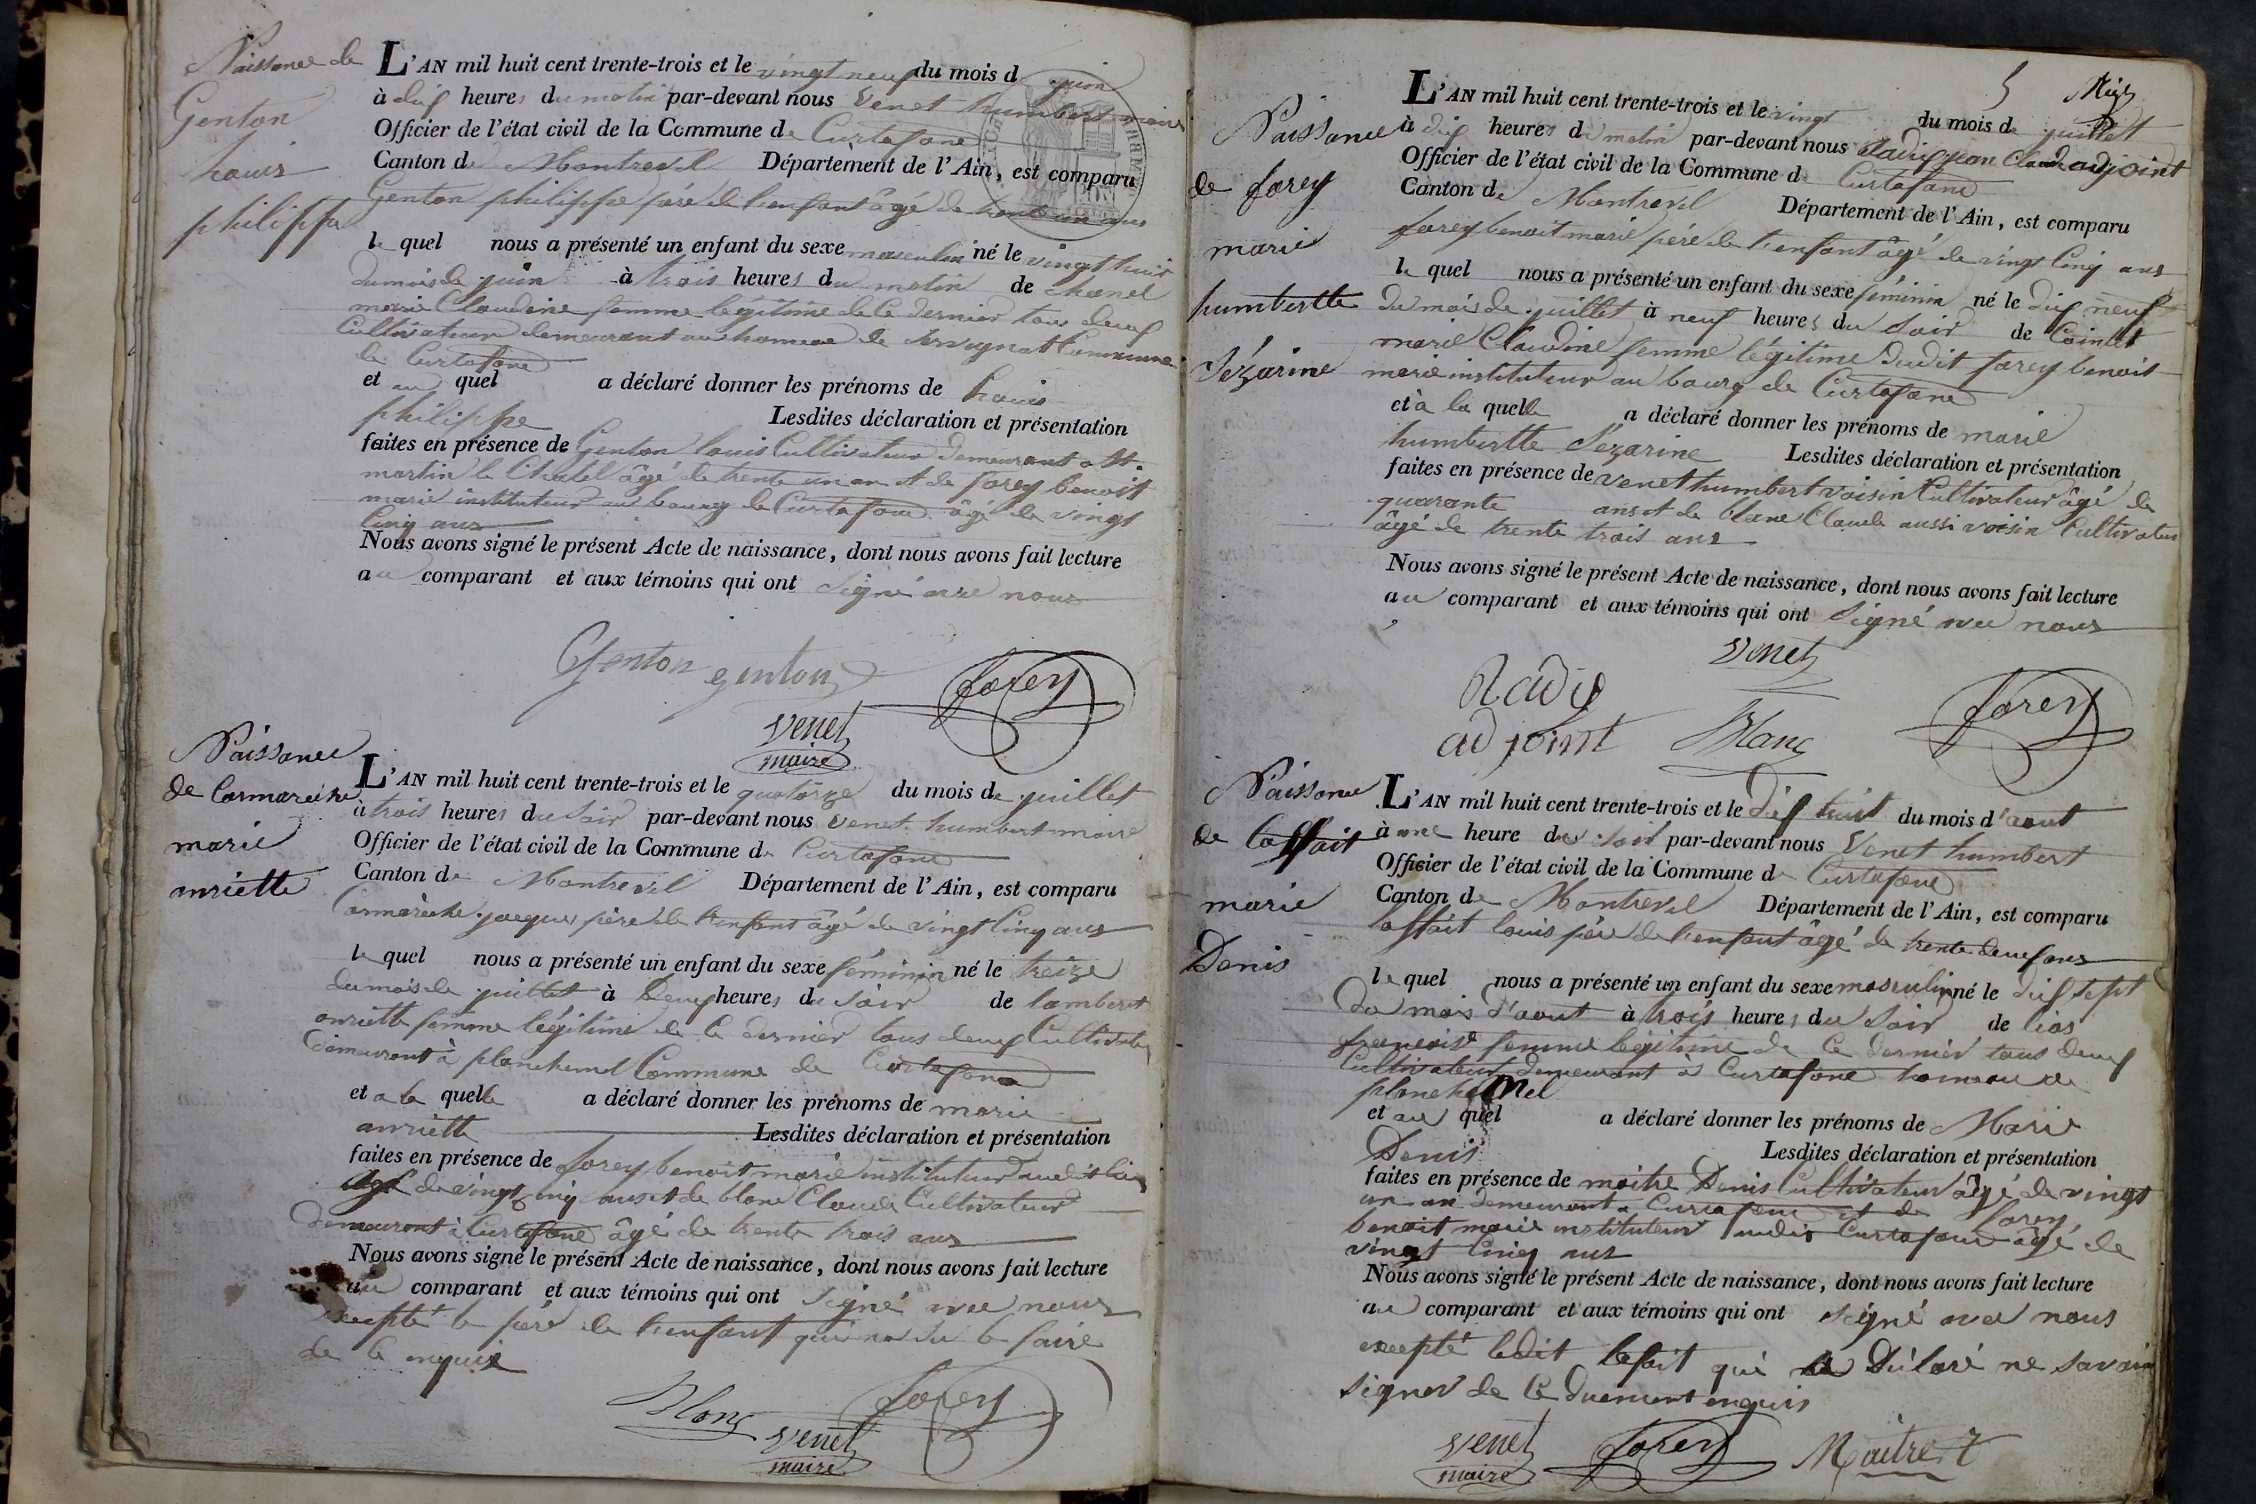 Naissance de
Genton
Louis
philippe
L'AN mil huit cent trente-trois et le vingt neuf du mois d juin
à dix heures du matin par-devant nous Venet humbert maire
Officier de l'état civil de la Commune de Curtafond
Canton de Montrevel Département de l'Ain, est comparu
Genton philippe père de l'enfant âgé de trente un ans
le quel nous a présenté un enfant du sexe masculin né le vingt huit
du mois de juin à trois heures du matin de
marie Claudine femme légitime de Ce dernier tous deux
Cultivateur demeurant au hameau de Commune
de Curtafond
et au quel a déclaré donner les prénoms de Louis
philippe Lesdites déclaration et présentation
faites en présence de Genton louis Cultivateur demeurant a St.
martin le Chatel âgé de trente un an et de forey benoit
marie instituteur au bourg de Curtafond âgé de vingt
Cinq ans
Nous avons signé le présent Acte de naissance, dont nous avons fait lecture
au comparant et aux témoins qui ont signé avec nous
Genton genton forey
Venet
maire
Naissance
de Cormarèche
marie
anriette
L'AN mil huit cent trente-trois et le quatorze du mois de juillet
à trois heures du Soir par-devant nous Venet humbert maire
Officier de l'état civil de la Commune de Curtafond
Canton de Montrevel Département de l'Ain, est comparu
Cormarèche jacques père de l'enfant âgé de vingt Cinq ans
le quel nous a présenté un enfant du sexe féminin né le treize
du mois de juillet à Deux heures du Soir de lambert
anriette femme légitime de Ce dernier tous deux Cultivateur
demeurant à planchemel Commune de Curtafond
et a la quelle a déclaré donner les prénoms de marie
anriette Lesdites déclaration et présentation
faites en présence de forey benoit marie instituteur audit lieu
âgé de vingt cinq ans et de blanc Claude Cultivateur
demeurant à Curtafond âgé de trente trois ans
Nous avons signé le présent Acte de naissance, dont nous avons fait lecture
au comparant et aux témoins qui ont signé avec nous
excepté le père de l'enfant qui na su le faire
de ce enquis
Blanc forey
Venet
maire
5
Naissance
de forey
marie
humbertte
Sézarine
L'AN mil huit cent trente-trois et le vingt du mois de juillet
à dix heures du matin par-devant nous jean Claude adjoint
Officier de l'état civil de la Commune de Curtafond
Canton de Montrevel Département de l'Ain, est comparu
forey benoit marie père de l'enfant âgé de vingt Cinq ans
le quel nous a présenté un enfant du sexe féminin né le dix neuf
du mois de juillet à neuf heures du Soir de Cointet
marie Claudine femme légitime dudit forey benoit
marie instituteur au bourg de Curtafond
et à la quelle a déclaré donner les prénoms de marie
humbertte Sézarine Lesdites déclaration et présentation
faites en présence de venet humbert voisin Cultivateur âgé de
quarante ans et de blanc Claude aussi voisin Cultivateur
âgé de trente trois ans
Nous avons signé le présent Acte de naissance, dont nous avons fait lecture
au comparant et aux témoins qui ont signé avec nous
Venet
adjoint Blanc forey
Naissance
de laffait
marie
Denis
L'AN mil huit cent trente-trois et le dix huit du mois d'aout
à une heure du soir par-devant nous Venet humbert
Officier de l'état civil de la Commune de Curtafond
Canton de Montrevel Département de l'Ain, est comparu
laffait louis père de l'enfant âgé de trente deux ans
le quel nous a présenté un enfant du sexe masculin né le dix sept
du mois d'aout à trois heures du Soir de
francoise femme légitime de Ce dernier tous deux
Cultivateur demeurant à Curtafond hameau de
planchemel
et au quel a déclaré donner les prénoms de Marie
Denis Lesdites déclaration et présentation
faites en présence de maitre Denis Cultivateur âgé de vingt
un an demeurant a Curtafond et de forey
benoit marie instituteur audit Curtafond âgé de
vingt Cinq ans
Nous avons signé le présent Acte de naissance, dont nous avons fait lecture
au comparant et aux témoins qui ont signé avec nous
excepté ledit lafait qui a Déclaré ne savoir
signer de Ce duement enquis
Venet forey Maitre
maire